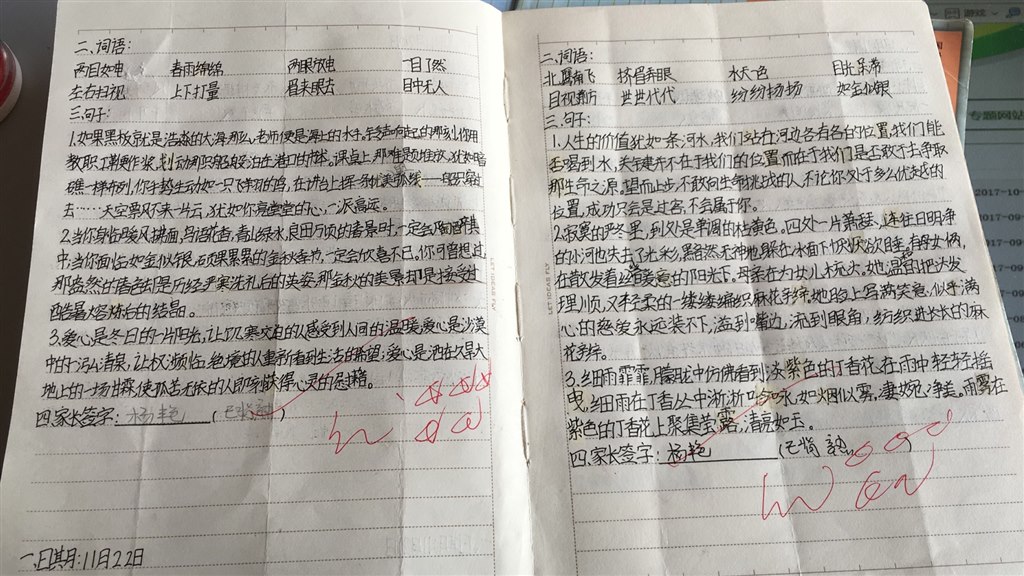 二、词语:
两目如电 春雨绵绵 两眼放电 一目了然
左右扫视 上下打量 眉来眼去 目中无人
三.句子:
1.如果黑板就是浩淼的大海,那么,老师便是海上的水手,铃声响起的那刻,你用
教职工鞭作浆,划动那船只般泊在港口的 课桌上,那难题堆放,犹如暗
礁一样布列,你手势生动如一只飞翔的鸟,在讲台上挥一条优美弧线——船只穿过
去……天空飘不来一片云,犹如你亮堂堂的心,一派高远。
2.当你身临暖风拂面,鸟语花香,青山绿水,良田万顷的春景时,一定会陶醉其
中,当你面临如金似银,硕果累累的金秋季节,一定会欣喜不已。你可曾想过,
那盎然的春色却是历经严寒洗礼后的英姿,那金秋的美景却是接受过
酷暑熔炼后的结晶。
3.爱心是冬日的一片阳光,让饥寒交迫的人感受到人间的温暖,爱心是沙漠
中的一泓清泉,让权濒临绝境的人重新看到生活的希望;爱心是洒在久旱大
地上的一场甘霖,使孤苦无依的人即刻获得心灵的慰藉。
四.家长签字:杨艳 (已背 )
一.日期:11月22日
二、词语:
北雁南飞 挤眉弄眼 水天一色 目光呆滞
目视前方 世世代代 纷纷扬扬 如金似银
三.句子:
1.人生的价值犹如一条河水,我们站在河边各有名的位置,我们能
否喝到水,关键并不在于我们的位置,而在于我们是否敢于去争取
那生命之源。望而止步,不敢向生命挑战的人,不论你处于多么优越的
位置,成功只会是过客,不会属于你。
2.寂寞的严冬里,到处是单调的枯黄色。四处一片萧瑟,连往日明净
的小河也失去了光彩,黯然无神地躲在冰面下恹恹欲睡。有母女俩,
在散发着丝丝暖意的阳光下。母亲在为女儿扎玩头,她温柔的把头发
理顺,又轻柔的一缕缕编织麻花手辫,她脸上写满笑意,似乎满
心的慈爱永远装不下,溢到嘴边,流到眼角,纺织进长长的麻
花手辫。
3.细雨霏霏,朦胧中仿佛看到淡紫色的丁香花,在雨中轻轻摇
曳,细雨在丁香丛中淅淅吟咏,如烟似雾,凄婉,净美。雨雾在
紫色的丁香花上聚集莹露,清亮如玉。
四.家长签字:杨艳 (已背 熟)